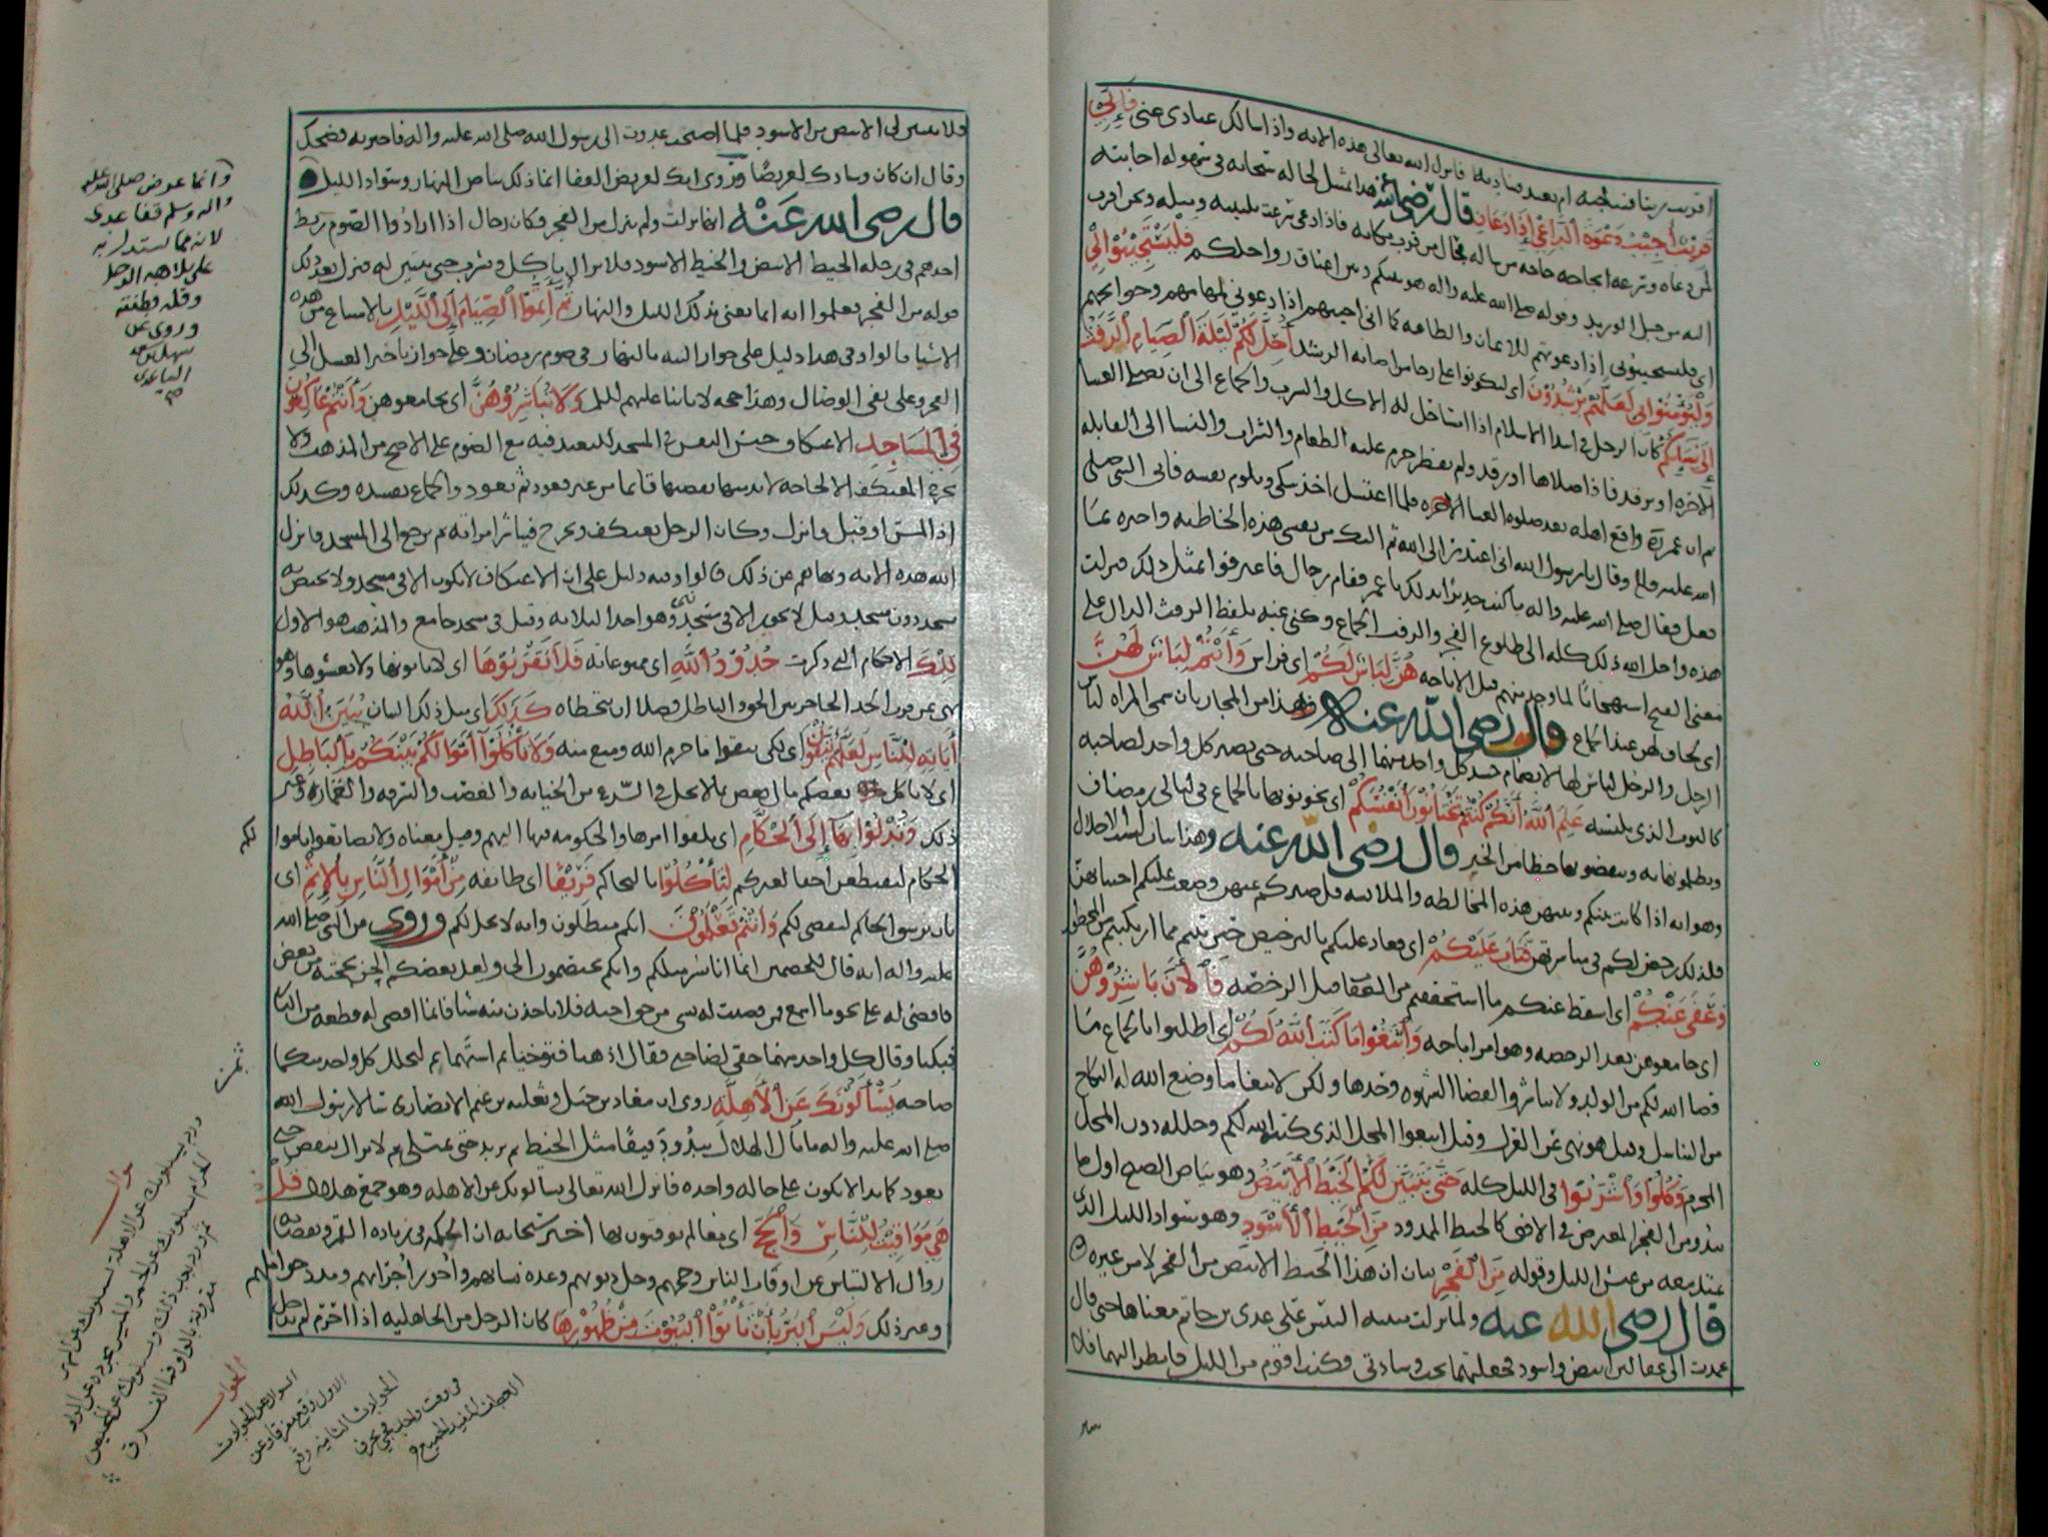 اقريب ربنا فنناجيه ام بعيد فنناديه فانزل الله تعالى هذه الايه واذا سالك عبادى عنى فَإِنِّي
قَرِيْبٌ أُجِيْبُ دَعْوَةَ ٱلدَّاعِى إِذَا دَعَانِ قال رضى الله عنه هذا تمثيل لحاله سبحانه فى سهوله اجابته
لمن دعاه وسرعه انجاحه حاجه من ساله بحال من قرب مكانه فاذا دعى سرعت تلبيته ومثله ونحن اقرب
اليه من حبل الوريد وقوله صلى الله عليه واله هو بينكم وبين اعناق رواحلكم فَلْيَسْتَجِيْبُوْا لِيْ
اى فليستجيبونى اذا دعوتهم للايمان والطاعه كما انى اجيبهم اذا دعونى لمهامهم وحوائجهم
وَلْيُؤْمِنُوْا بِى لَعَلَّهُمْ يَرْشُدُوْنَ اى ليكونوا على رجا من اصابه الرشد أُحِلَّ لَكُمْ لَيْلَةَ ٱلصِّيَامِ ٱلرَّفَثُ
إِلَى نِسَآئِكُمْ كان الرجل فى ابتدا الاسلام اذا امسا حل له الاكل والشرب والجماع الى ان يصلى العشا
الاخره او يرقد فاذا صلاها او رقد ولم يفطر حرم عليه الطعام والشراب والنسا الى القابله
ثم ان عمر واقع اهله بعد صلوه العشا الاخره فلما اغتسل اخذ يبكى ويلوم نفسه فاتى النبى صلى
الله عليه واله وقال يا رسول الله انى اعتذر الى الله ثم اليك من نفسى هذه الخاطيه واخبره بما
فعل فقال صلى الله عليه واله ما كنت جديرا بذلك يا عمر فقام رجال فاعترفوا بمثل ذلك فنزلت
هذه واحل الله ذلك كله الى طلوع الفجر والرفث الجماع وكنى عنه بلفظ الرفث الدال على
معنى القبح استهجانا لما وجد منهم قبل الاباحه هُنَّ لِبَاسٌ لَكُمْ اى فراش وَأَنْتُمْ لِبَاسٌ لَهُنَّ
اى لحاف لهن عند الجماع قال رضى الله عنه وهذا من المجاز بان سمى المراه لباس
الرجل والرجل لباس لها لانضمام جسد كل واحد منهما الى صاحبه حتى يصير كل واحد لصاحبه
كالثوب الذى يلبسه عَلِمَ ٱللَّهُ أَنَّكُمْ كُنْتُمْ تَخْتَانُوْنَ أَنْفُسَكُمْ اى تخونونها بالجماع فى ليالى رمضان
وتظلمونها به وتنقصونها حظها من الخير قال رضى الله عنه وهذا بيان لسبب الاحلال
وهو انه اذا كانت بينكم وبينهن هذه المخالطه والملابسه قل صبركم عنهن وصعب عليكم اجتنابهن
فلذلك رخص لكم فى مباشرتهن فَتَابَ عَلَيْكُمْ اى فعاد عليكم بالترخيص حين تبتم مما ارتكبتم من المحظور
وَعَفَى عَنْكُمْ اى اسقط عنكم ما استحققتم من العقاب قبل الرخصه فَٱلْأٓنَ بَاشِرُوْهُنَّ
اى جامعوهن بعد الرخصه وهو امر اباحه وَٱبْتَغُوْا مَا كَتَبَ ٱللَّهُ لَكُمْ اى اطلبوا بالجماع ما
قضا الله لكم من الولد ولا تباشروا لقضا الشهوه وحدها ولكن لابتغا ما وضع الله له النكاح
من التناسل وقيل هو نهى عن العزل وقيل ابتغوا المحل الذى كتبه الله لكم وحلله دون المحل
المحرم وَكُلُوْا وَٱشْرَبُوْا فى الليل كله حَتَّى يَتَبَيَّنَ لَكُمُ ٱلْخَيْطُ ٱلْأَبْيَضُ وهو بياض الصبح اول ما
يبدو من الفجر المعترض فى الافق كالخيط الممدود مِنَ ٱلْخَيْطِ ٱلْأَسْوَدِ وهو سواد الليل الذى
يمتد معه من غبش الليل وقوله مِنَ ٱلْفَجْرِ بيان ان هذا الخيط الابيض من الفجر لا من غيره
قال رضى الله عنه ولما نزلت التبس على عدى بن حاتم معناها حتى قال
عمدت الى عقالين ابيض واسود فجعلتهما تحت وسادتى فكنت اقوم من الليل فانظر اليهما فلا
فلا يتبين لى الابيض من الاسود فلما اصبحت غدوت الى رسول الله صلى الله عليه واله فاخبرته فضحك
وقال ان كان وسادك لعريضًا وروى انك لعريض القفا انما ذلك بياض النهار وسواد الليل
قال رضى الله عَنْه انها نزلت ولم ينزل من الفجر فكان رجال اذا ارادوا الصوم ربط
احدهم فى رجله الخيط الابيض والخيط الاسود فلا يزال ياكل ويشرب حتى يتبين له فنزل بعد ذلك
قوله من الفجر فعلموا انه انما يعنى بذلك الليل والنهار ثُمَّ أَتِمُّوْا ٱلصِّيَامَ إِلَى ٱلَّيْلِ بالامتناع من هذه
الاشيا قالوا وفى هذا دليل على جواز النيه بالنهار فى صوم رمضان وعلى جواز تاخير الغسل الى
الفجر وعلى نفى الوصال وهذا حجه لابائنا عليهم السلم وَلَا تُبَاشِرُوْهُنَّ اى تجامعوهن وَأَنْتُمْ عَاكِفُوْنَ
فِى ٱلْمَسَاجِدِ الاعتكاف حبس النفس فى المسجد للتعبد فيه مع الصوم على الاصح من المذهب ولا
يخرج المعتكف الا لحاجه لابد منها يقضيها قائما من غير قعود ثم يعود والجماع يفسده وكذلك
اذا لمس او قبل فانزل وكان الرجل يعتكف ويخرج فيباشر امراته ثم يرجع الى المسجد فانزل
الله هذه الايه ونهاهم عن ذلك قالوا وفيه دليل على ان الاعتكاف لا يكون الا فى مسجد ولا يختص به
مسجد دون مسجد وقيل لا يجوز الا فى مسجد نبى وهو احد الثلاثه وقيل فى مسجد جامع والمذهب هو الاول
تِلْكَ الاحكام التى ذكرت حُدُوْدُ ٱللَّهِ اى ممنوعاته فَلَا تَقْرَبُوْهَا اى لا تاتوها ولا تغشوها وهو
نهى عن قرب الحد الحاجز بين الحق والباطل فضلا ان يتخطاه كَذَلِكَ اى مثل ذلك البيان يُبَيِّنُ ٱللَّهُ
أٓيَاتِهِ لِلنَّاسِ لَعَلَّهُمْ يَتَّقُوْنَ اى لكى يتقوا ما حرم الله ومنع منه وَلَا تَأْكُلُوْا أَمْوَالَكُمْ بَيْنَكُمْ بِٱلْبَاطِلِ
اى لا ياكل بعضكم مال بعض بما لا يحل فى الشرع من الخيانه والغصب والسرقه والقمار وغير
ذلك وَتُدْلُوْا بِهَآ إِلَى ٱلْحُكَّامِ اى تلقوا امرها والحكومه فيها اليهم وقيل معناه ولا تصانعوا باموالكم
الحكام ليقتطعوا حقا لغيركم لِتَأْكُلُوْا بالتحاكم فَرِيْقًا اى طائفه مِنْ أَمْوَالِ ٱلنَّاسِ بِٱلْإِثْمِ اى
بان ترشوا الحاكم ليقضى لكم وَأَنْتُمْ تَعْلَمُوْنَ انكم مبطلون وانه لا يحل لكم وروى عن النبى صلى الله
عليه واله انه قال للخصمين انما انا بشر مثلكم وانكم تختصمون الى ولعل بعضكم الحن بحجته من بعض
فاقضى له على نحو ما اسمع فمن قضيت له بشى من حق اخيه فلا ياخذن منه شيا فانما اقضى له قطعه من النار
فبكيا وقال كل واحد منهما حقى لصاحبى فقال اذهبا فتوخيا ثم استهما ثم ليحلل كل واحد منكما
صاحبه يَسْأَلُوْنَكَ عَنِ ٱلْأَهِلَّةِ روى ان معاذ بن جبل وثعلبه بن غنم الانصارى سالا رسول الله
صلى الله عليه واله ما بال الهلال يبدو دقيقًا مثل الخيط ثم يزيد حتى يمتلى ثم لا يزال ينقص حتى
يعود كما بدا لا يكون على حاله واحده فانزل الله تعالى يسالونك عن الاهله وهو جمع هلال قُلْ
هِيَ مَوَاقِيْتُ لِلنَّاسِ وَٱلْحَجِّ اى معالم يوقتون بها اخبر سبحانه ان الحكمه فى زياده القمر ونقصانه
زوال الالتباس عن اوقات الناس وحجهم وحل ديونهم وعده نسائهم واجور اجرائهم ومدد حواملهم
وغير ذلك وَلَيْسَ ٱلْبِرُّ بِأَنْ تَأْتُوْا ٱلْبُيُوْتَ مِنْ ظُهُوْرِهَا كان الرجل من الجاهليه اذا احرم لم يدخل
وانما عرض صلى الله عليه
واله وسلم قفا عدى
لانه مما يستدل به
على بلاهه الرجل
وقله فطنته
وروى عن
سهل بن سعد
الساعدى
سوال
الجواب